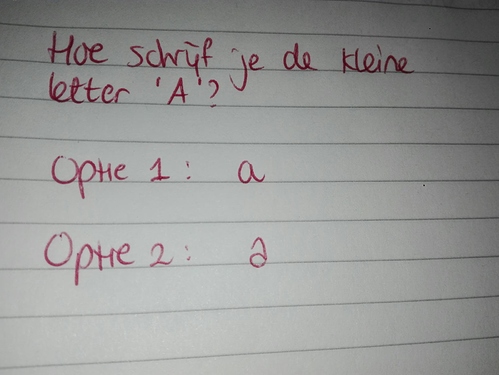 Hoe schrijf je de kleine
letter 'A'?
Optie 1: a
Optie 2: a